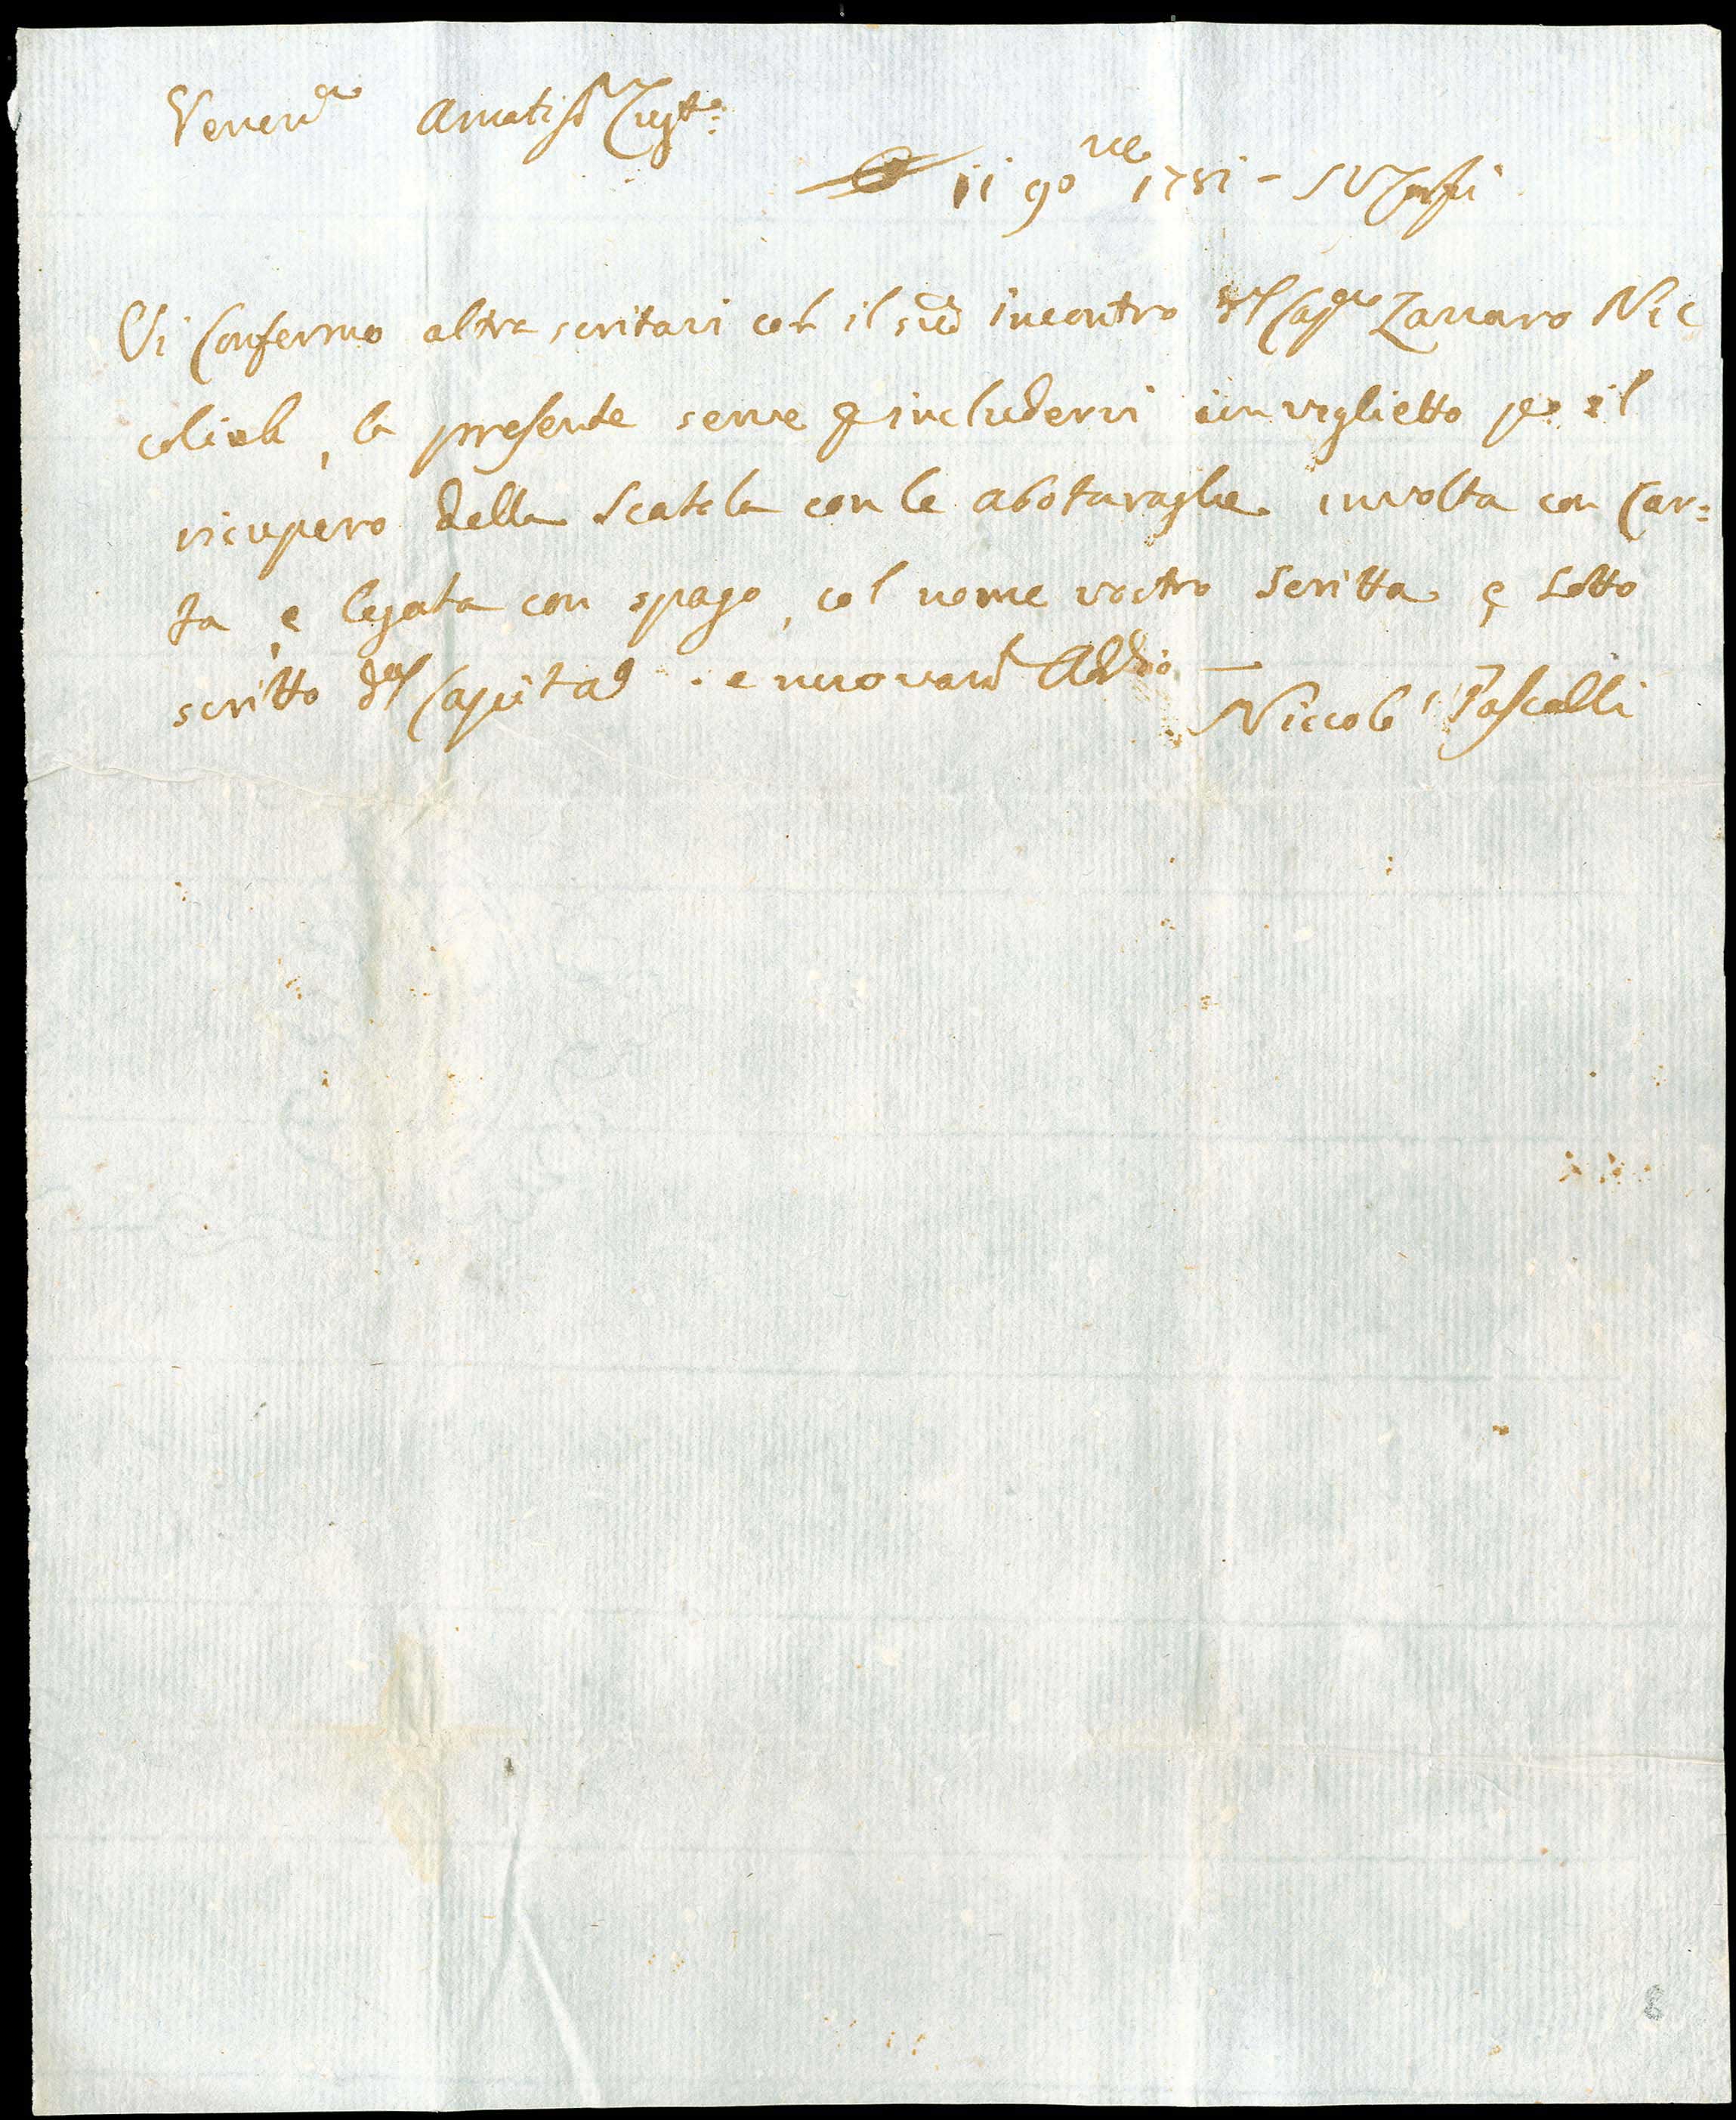 Venezia Amatiss
11 9bre 1781 -
Vi Confermo altra scritavi con il sud incontro del Cap Zanaro Nic
la presente serve p includervi un viglietto per il
ricupero della Scatola con le abotaraghe involta con Car=
ta, e legata con spago, col nome vostro Scritta e Sotto
scritto dal Capitao . e Addio —
Niccolò Pascalli